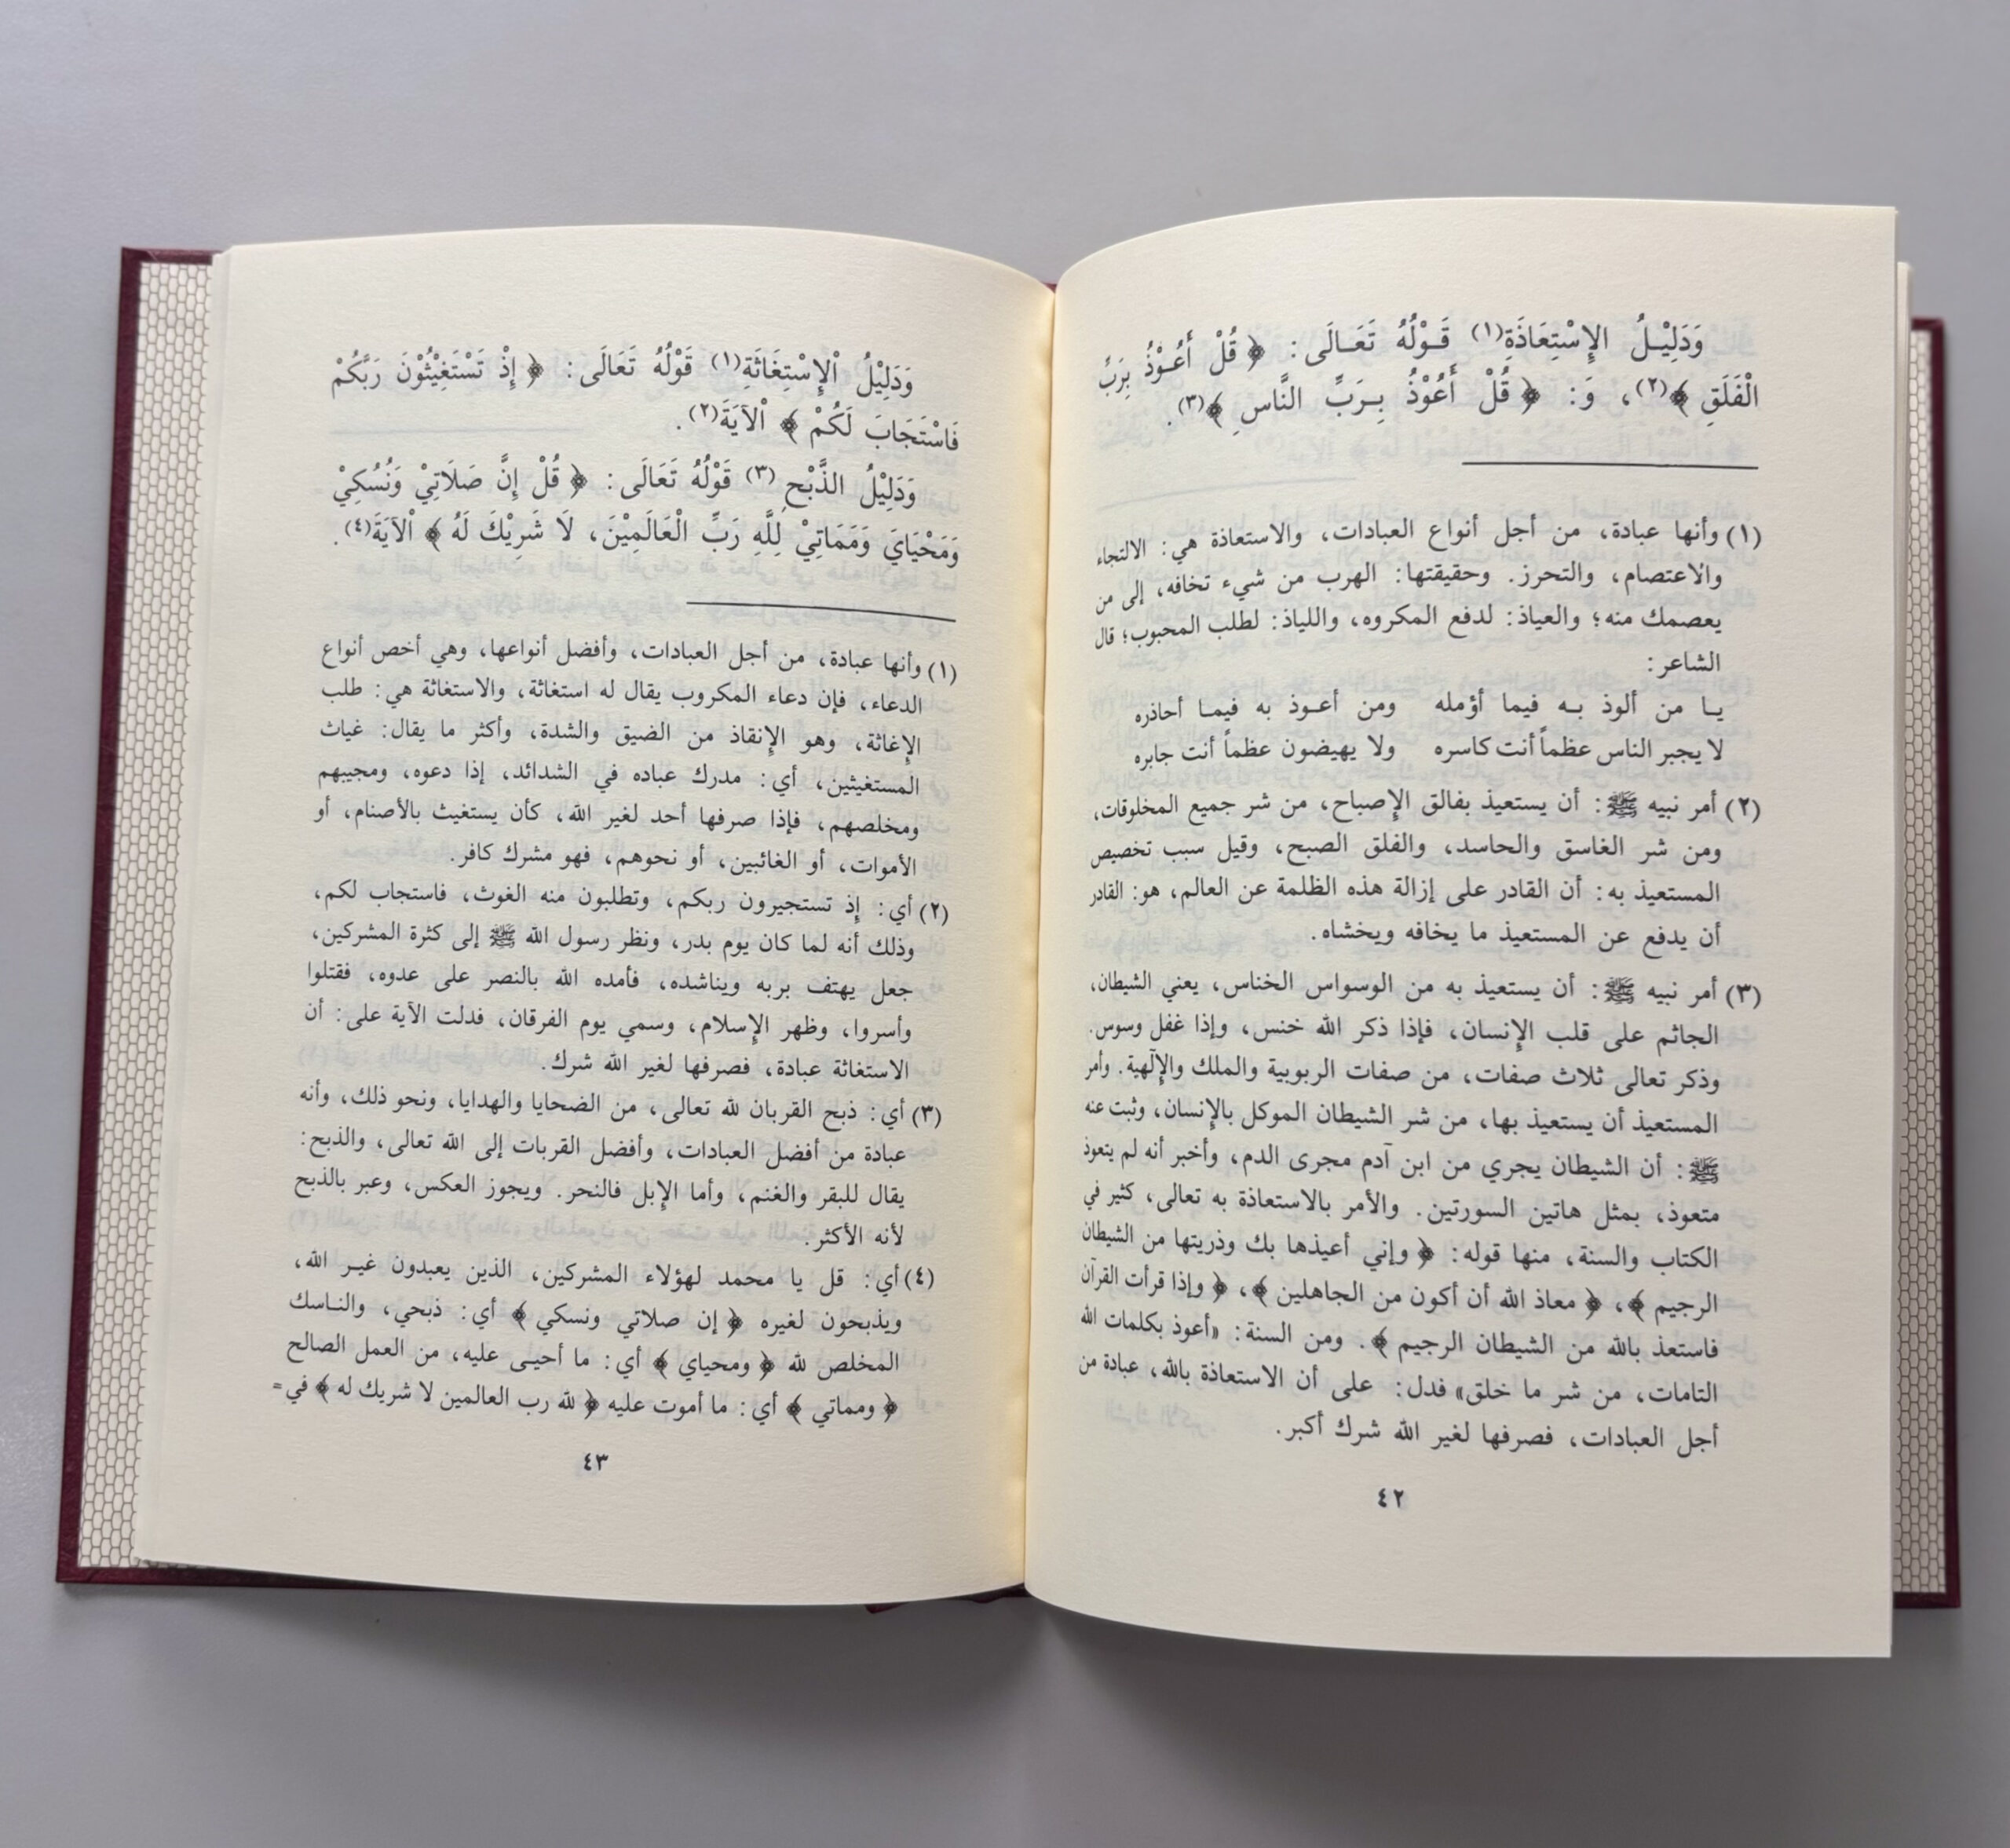 وَدَلِيْـلُ الإِسْتِعَاذَةِ(١) قَـوْلُهُ تَعَـالَى: ﴿ قُلْ أَعُـوْذُ بِرَبِّ
الْفَلَقِ ﴾(٢)، وَ: ﴿ قُلْ أَعُوْذُ بِـرَبِّ النَّاسِ ﴾(٣).
(١) وأنها عبادة، من أجل أنواع العبادات، والاستعاذة هي: الالتجاء
والاعتصام، والتحرز. وحقيقتها: الهرب من شيء تخافه، إلى من
يعصمك منه؛ والعياذ: لدفع المكروه، واللياذ: لطلب المحبوب؛ قال
الشاعر:
يـا من ألوذ بـه فيما أؤمله ومن أعـوذ به فيمـا أحاذره
لا يجبر الناس عظماً أنت كاسره ولا يهيضون عظماً أنت جابره
(٢) أمر نبيه ﷺ: أن يستعيذ بفالق الإصباح، من شر جميع المخلوقات،
ومن شر الغاسق والحاسد، والفلق الصبح، وقيل سبب تخصيص
المستعيذ به: أن القادر على إزالة هذه الظلمة عن العالم، هو: القادر
أن يدفع عن المستعيذ ما يخافه ويخشاه.
(٣) أمر نبيه ﷺ: أن يستعيذ به من الوسواس الخناس، يعني الشيطان،
الجاثم على قلب الإنسان، فإذا ذكر الله خنس، وإذا غفل وسوس.
وذكر تعالى ثلاث صفات، من صفات الربوبية والملك والإلٓهية. وأمر
المستعيذ أن يستعيذ بها، من شر الشيطان الموكل بالإنسان، وثبت عنه
ﷺ: أن الشيطان يجري من ابن آدم مجرى الدم، وأخبر أنه لم يتعوذ
متعوذ، بمثل هاتين السورتين. والأمر بالاستعاذة به تعالى، كثير في
الكتاب والسنة، منها قوله: ﴿ وإني أعيذها بك وذريتها من الشيطان
الرجيم ﴾، ﴿ معاذ الله أن أكون من الجاهلين ﴾، ﴿ وإذا قرأت القرآن
فاستعذ بالله من الشيطان الرجيم ﴾. ومن السنة: «أعوذ بكلمات الله
التامات، من شر ما خلق» فدل: على أن الاستعاذة بالله، عبادة من
أجل العبادات، فصرفها لغير الله شرك أكبر.
٤٢
وَدَلِيْلُ اْلإِسْتِغَاثَةِ(١) قَوْلُهُ تَعَالَى: ﴿ إِذْ تَسْتَغِيْثُوْنَ رَبَّكُمْ
فَاسْتَجَابَ لَكُمْ ﴾ اْلآيَةَ(٢).
وَدَلِيْلُ الذَّبْحِ (٣) قَوْلُهُ تَعَالَى: ﴿ قُلْ إِنَّ صَلَاتِيْ وَنُسُكِيْ
وَمَحْيَايَ وَمَمَاتِيْ لِلَّهِ رَبِّ الْعَالَمِيْنَ، لَا شَرِيْكَ لَهُ ﴾ اْلآيَةَ(٤).
(١) وأنها عبادة، من أجل العبادات، وأفضل أنواعها، وهي أخص أنواع
الدعاء، فإن دعاء المكروب يقال له استغاثة، والاستغاثة هي: طلب
الإغاثة، وهو الإنقاذ من الضيق والشدة، وأكثر ما يقال: غياث
المستغيثين، أي: مدرك عباده في الشدائد، إذا دعوه، ومجيبهم
ومخلصهم، فإذا صرفها أحد لغير الله، كأن يستغيث بالأصنام، أو
الأموات، أو الغائبين، أو نحوهم، فهو مشرك كافر.
(٢) أي: إذ تستجيرون ربكم، وتطلبون منه الغوث، فاستجاب لكم،
وذلك أنه لما كان يوم بدر، ونظر رسول الله ﷺ إلى كثرة المشركين،
جعل يهتف بربه ويناشده، فأمده الله بالنصر على عدوه، فقتلوا
وأسروا، وظهر الإسلام، وسمي يوم الفرقان، فدلت الآية على: أن
الاستغاثة عبادة، فصرفها لغير الله شرك.
(٣) أي: ذبح القربان لله تعالى، من الضحايا والهدايا، ونحو ذلك، وأنه
عبادة من أفضل العبادات، وأفضل القربات إلى الله تعالى، والذبح:
يقال للبقر والغنم، وأما الإبل فالنحر. ويجوز العكس، وعبر بالذبح
لأنه الأكثر.
(٤) أي: قل يا محمد لهؤلاء المشركين، الذين يعبدون غيـر الله،
ويذبحون لغيره ﴿ إن صلاتي ونسكي ﴾ أي: ذبحي، والنـاسك
المخلص لله ﴿ ومحياي ﴾ أي: ما أحيـى عليه، من العمل الصالح
﴿ ومماتي ﴾ أي: ما أموت عليه ﴿ لله رب العالمين لا شريك له ﴾ في=
٤٣